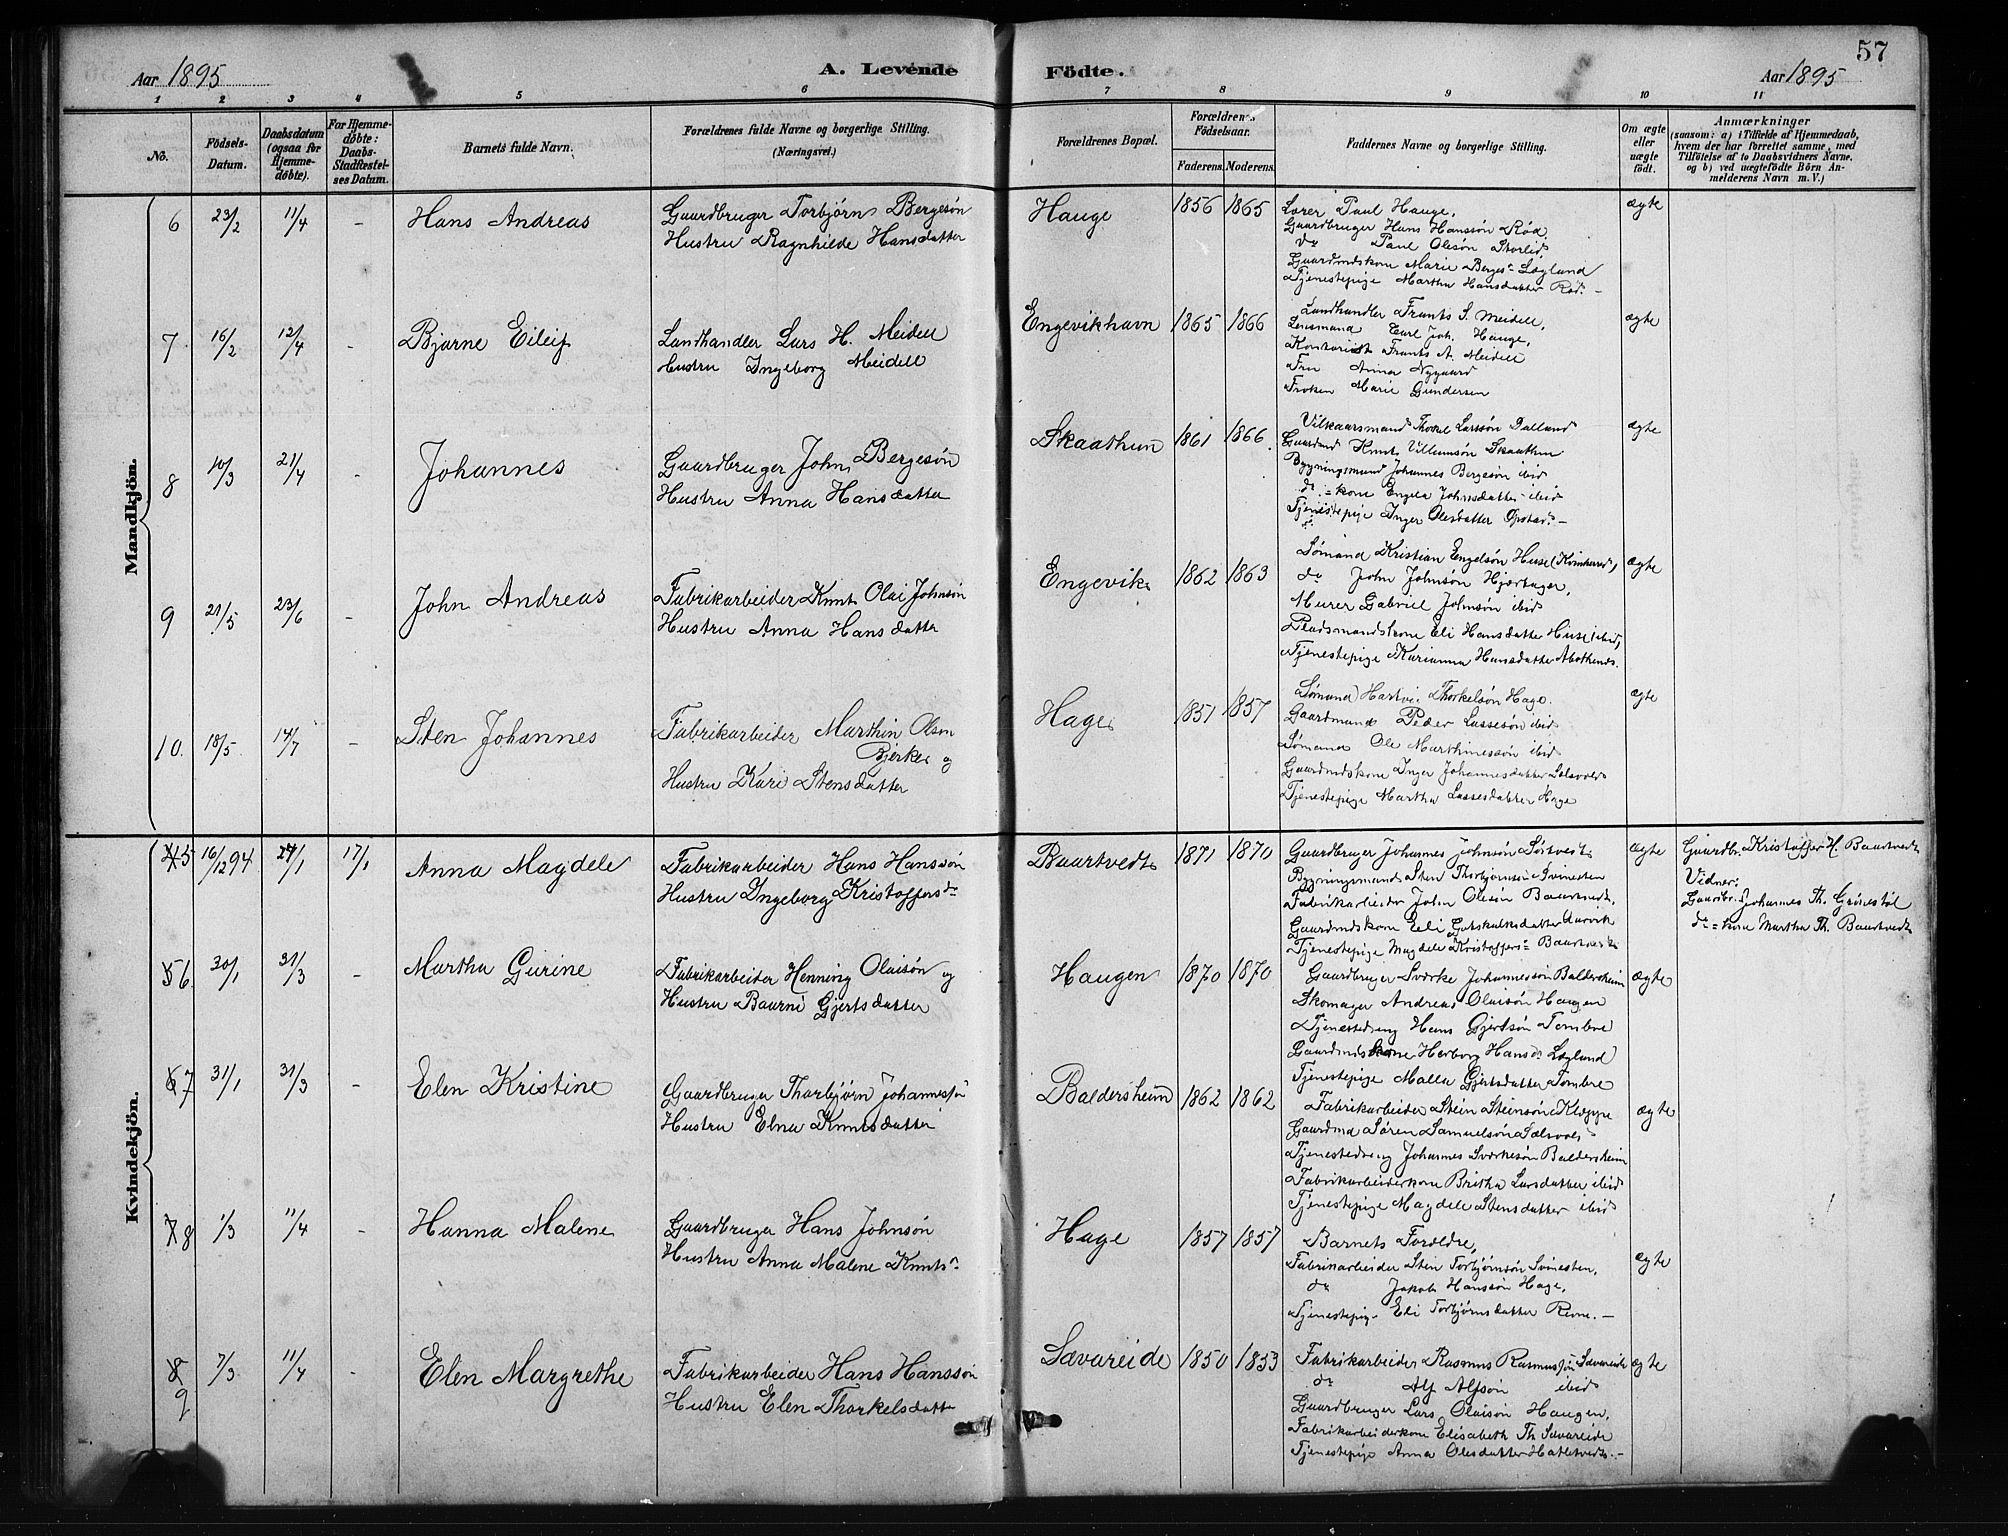 57
Aar 1895
A. Levende Födte.
Aar 1895
1 2 3 4 5 6 7 8 9 10 11
No.
Födsels-
Datum.
Daabsdatum
(ogsaa for
Hjemme-
döbte).
For Hjemme-
döbte:
Daabs-
Stadfæstel-
ses Datum.
Barnets fulde Navn.
Forældrenes fulde Navne og borgerlige Stilling.
(Næringsvei.)
Forældrenes Bopæl.
Forældrenes
Födselsaar.
Faderens. Moderens.
Faddernes Navne og borgerlige Stilling.
Om ægte
eller
uægte
födt.
Anmærkninger
(saasom: a) i Tilfælde af Hjemmedaab,
hvem der har forrettet samme, med
Tilföielse af to Daabsvidners Navne,
og b) ved uægtefödte Börn An-
melderens Navn m. V.)
Mandkjön.
6 23/2 11/4 - Hans Andreas
Gaardbruger Torbjørn Bergesön
Hustru Ragnhilde Hansdatter
Hauge 1856 1865
Lærer Paul Hauge,
Gaardbruger Hans Hanssön Rød,
do Paul Olesön Storlid
Gaardmdskone Marie Berges Løglund
Tjenestepige Martha Hansdatter Rød. -
ægte
7 16/2 12/4 - Bjarne Eileif
Landhandler Lars H. Meidell
Hustru Ingeborg Meidell
Engevikhavn 1865 1866
Landhandler Frants S. Meidell,
Lensmand Carl Joh. Hauge,
Kontorist Frants A. Meidell
Fru Anna Nygaard
Frøken Marie Gundersen
ægte
8 10/3 21/4 - Johannes
Gaardbruger John Bergesön
Hustru Anna Hansdatter
Skaathun 1861 1866
Vilkaarsmand Thorkel Larssön Dalland
Gaardmd Knut Villumsön Skaathun
Bygningsmand Johannes Bergesön ibid
do = kone Engela Johnsdatter ibid
Tjenestepige Inger Olesdatter Opstad. -
ægte
9 21/5 23/6 - John Andreas
Fabrikarbeider Knut Olai Johnsön
Hustru Anna Hansdatter
Engevik 1862 1863
Sømand Kristian Engelsön Huse (Kvinherred),
do John Johnsön Hjartager,
Murer Gabriel Johnsön ibid
Pladsmandskone Eli Hansdatter Huse ibid,
Tjenestepige Karianna Hansdatter
ægte
10. 18/5 14/7 - Sten Johannes
Fabrikarbeider Marthin Olson
Bjerke og
Hustru Kari Stensdatter
Hage 1851 1857
Sømand Hartvig Thorkelsön Hage.
Gaardmand Peder Lassesön ibid
Sømand Ole Marthinessön ibid
Gaardmdskone Inger Johannesdatter Sælsvold
Tjenestepige Martha Lassesdatter Hage
ægte
Kvindekjön.
5 16/12 94 27/1 17/1 Anna Magdele
Fabrikarbeider Hans Hanssön
Hustru Ingeborg Kristoffersdr
Baartvedt 1871 1870
Gaardbruger Johannes Johnsön Sørtvedt
Bygningsmand Sten Thorbjørnsön Svinesten
Fabrikarbeider John Olesön Baartvedt,
Gaardmdskone Eli Gotskalksdatter Aarvik
Tjenestepige Magdele Kristoffers= Baartvedt
ægte
Gaardbr. Kristoffer H. Baartvedt
Vidner:
Gaardbr. Johannes Th. Grönestöl
do = kone Martha Th. Baartvedt
6 30/1 31/3 - Martha Gurine
Fabrikarbeider Henning Olaisön og
Hustru Baarni Gjertsdatter
Haugen 1870 1870
Gaardbruger Sværke Johannessön Baldersheim
Skomager Andreas Olaisön Haugen
Tjenestedreng Hans Gjertsön Tombre
Gaardmdskone Herborg Hansdr Løglund
Tjenestepige Malla Gjertsdatter Tombre
ægte
7 31/1 31/3 - Elen Kristine
Gaardbruger Thorbjörn Johannessön
Hustru Elna Knutsdatter
Baldersheim 1862 1862
Fabrikarbeider Stein Steinsön Kleppe
Gaardmd Sören Samuelsön Sælsvold
Tjenestedreng Johannes Sværkesön Baldersheim
Fabrikarbeiderkone Britha Larsdatter ibid
Tjenestepige Magdele Stensdatter ibid
ægte
8 1/3 11/4 - Hanna Malene
Gaardbruger Hans Johnsön
Hustru Anna Malene Knutsdr
Hage 1857 1857
Barnets Forældre,
Fabrikarbeider Sten Torbjörnsön Svinesten,
do Jakob Hanssön Hage,
Tjenestepig. Eli Torbjörnsdatter Revne. -
ægte
9 7/3 11/4 - Elen Margrethe
Fabrikarbeider Hans Hanssön
Hustru Elen Thorkelsdatter
Sævareide 1850 1853
Fabrikarbeider Rasmus Rasmussön Sævareide
do Alf Alfsön ibid
Gaardbruger Lars Olaisön Haugen,
Fabrikarbeiderkone Elisabeth Th Sævareide
Tjenestepige Anna Olesdatter Hatletvedt. -
ægte